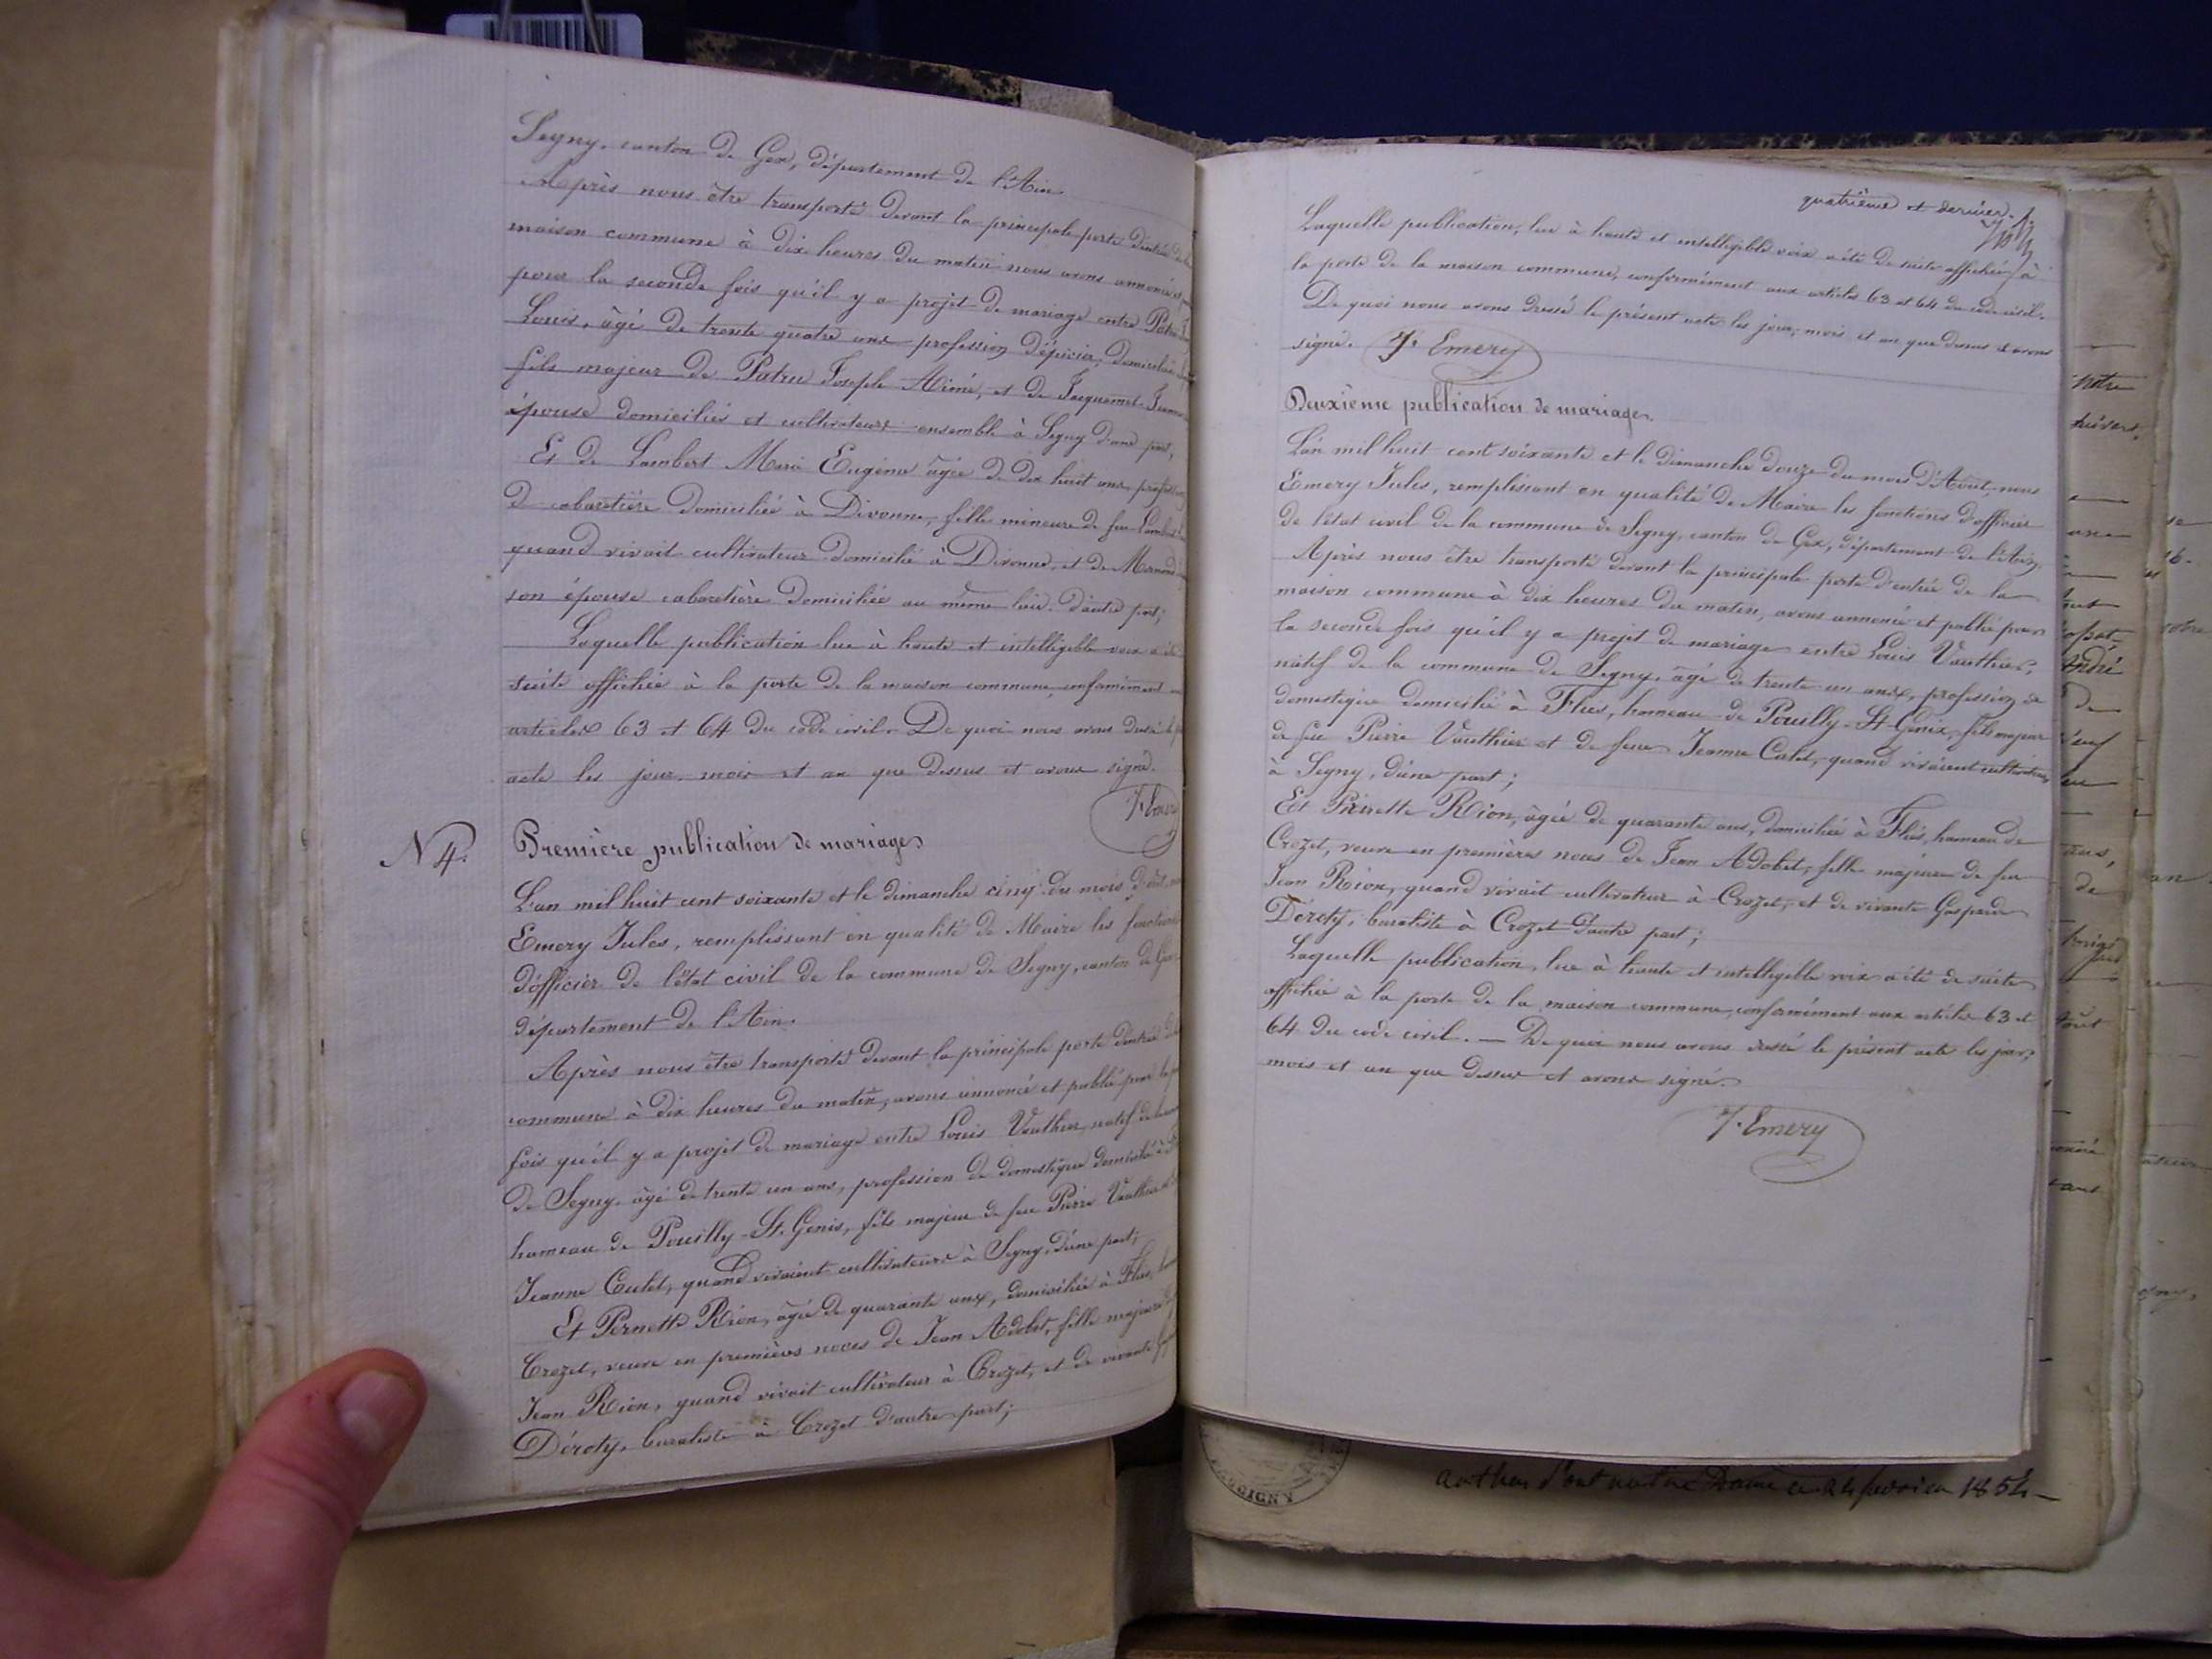 Segny, canton de Gex, département de l'Ain.
Après nous être transporté devant la principale porte d'entrée de la
maison commune à dix heures du matin nous avons annoncé et
pour la seconde fois qu'il y a projet de mariage entre Patru
Louis, âgé de trente quatre ans profession d'épicier, domicilié
fils majeur de Patru Joseph Aimé, et de Jacquemet
épouse domiciliés et cultivateurs ensemble à Segny d'une part,
Et de Lambert Marie Eugénie âgée de dix huit ans, profession
de cabaretière domiciliée à Divonne, fille mineure de feu Lambert
quand vivait cultivateur domicilié à Divonne, et de
son épouse cabaretière domiciliée au même lieu d'autre part;
Laquelle publication lue à haute et intelligible voix a été
suite affichée à la porte de la maison commune conformément
articles 63 et 64 du code civil. De quoi nous avons dressé le
acte les jour, mois et an que dessus et avons signé.
J. Emery
N 4.
Première publication de mariage
L'an mil huit cent soixante et le dimanche cinq du mois d'Août,
Emery Jules, remplissant en qualité de Maire les fonctions
d'officier de l'état civil de la commune de Segny, canton de Gex
département de l'Ain.
Après nous être transporté devant la principale porte d'entrée
commune à dix heures du matin, avons annoncé et publié pour la
fois qu'il y a projet de mariage entre Louis Vauthier, natif de la
de Segny, âgé de trente un ans, profession de domestique domicilié à
hameau de Pouilly-St. Genis, fils majeur de feu Pierre Vauthier
Jeanne Cutet, quand vivaient cultivateurs à Segny, d'une part;
Et Pernette Rion, âgée de quarante ans, domiciliée à Flies,
Crozet, veuve en premières noces de Jean Adobet, fille majeure
Jean Rion, quand vivait cultivateur à Crozet, et de vivante
Déroty, buraliste à Crozet d'autre part;
quatrième et dernier.
Laquelle publication, lue à haute et intelligible voix a été de suite affichée à
la porte de la maison commune, conformément aux articles 63 et 64 du code civil.
De quoi nous avons dressé le présent acte les jour, mois et an que dessus et avons
signé. J. Emery
Deuxième publication de mariage.
L'an mil huit cent soixante et le dimanche douze du mois d'Août, nous
Emery Jules, remplissant en qualité de Maire les fonctions d'officier
de l'état civil de la commune de Segny, canton de Gex, département de l'Ain,
Après nous être transporté devant la principale porte d'entrée de la
maison commune à dix heures du matin, avons annoncé et publié pour
la seconde fois qu'il y a projet de mariage entre Louis Vauthier,
natif de la commune de Segny, âgé de trente un ans, profession de
domestique domicilié à Flies, hameau de Pouilly-St-Genix, fils majeur
de feu Pierre Vauthier et de feue Jeanne Cutet, quand vivaient cultivateurs
à Segny, d'une part;
Et Pernette Rion, âgée de quarante ans, domiciliée à Flies, hameau de
Crozet, veuve en premières noces de Jean Adobet, fille majeure de feu
Jean Rion, quand vivait cultivateur à Crozet, et de vivante Gasparde
Déroty, buraliste à Crozet d'autre part;
Laquelle publication, lue à haute et intelligible voix a été de suite
affichée à la porte de la maison commune, conformément aux articles 63 et
64 du code civil. — De quoi nous avons dressé le présent acte les jour,
mois et an que dessus et avons signé.
J. Emery
1854